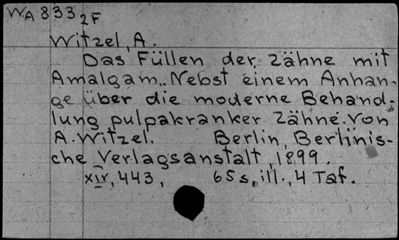 WA 833 2F
Witzel, A.
Das Füllen der Zähne mit
Amalgam.. Nebst einem Anhan-
ge über die moderne Behand-
lung pulpakranker Zähne. Von
A. Witzel. Berlin, Berlinis-
che Verlagsanstalt, 1899.
XIV, 443, 65 s, ill., 4 Taf.